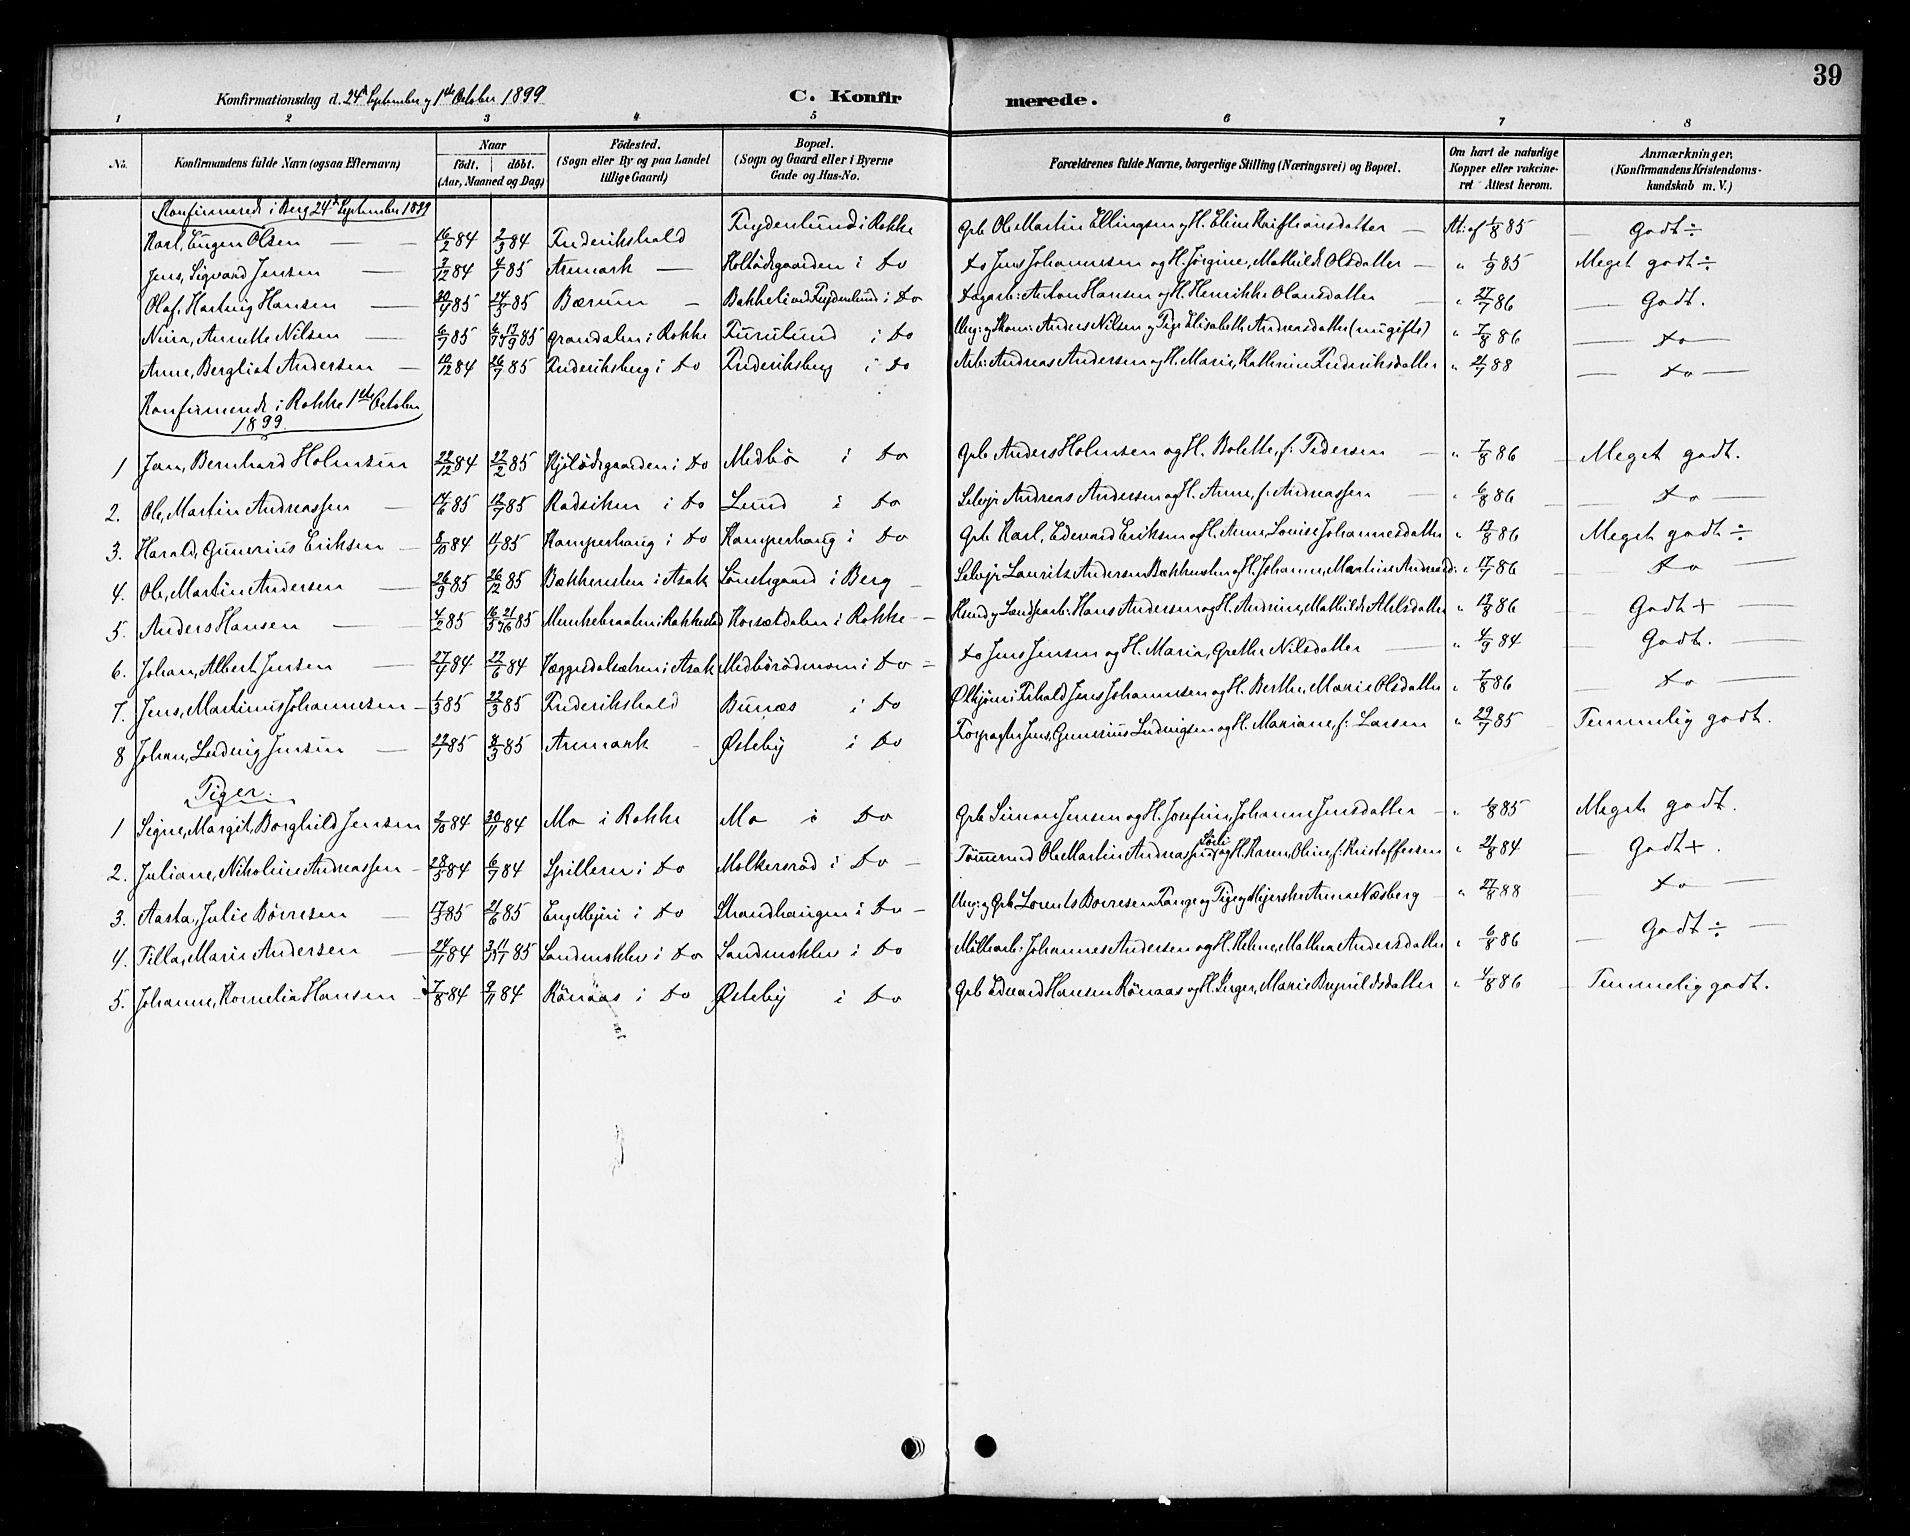 39
Konfirmationsdag d. 24de September og 1ste October 1899
C. Konfirmerede.
1 2 3 4 5 6 7 8
No.
Konfirmandens fulde Navn (ogsaa Efternavn)
Naar
født. døbt.
(Aar, Maaned og Dag)
Födested.
(Sogn eller By og paa Landet
tillige Gaard)
Bopæl.
(Sogn og Gaard eller i Byerne
Gade og Hus-No.
Forældrenes fulde Navne, borgerlige Stilling (Næringsvei) og Bopæl.
Om havt de naturlige
Kopper eller vakcine-
ret Attest herom.
Anmærkninger.
(Konfirmandens Kristendoms-
kundskab m. V.)
Konfirmerede i Berg 24de September 1899
Karl, Eugen Olsen 16/2 84 2/3 84 Frederikshald Frydenlund i Rokke Grb. Ole Martin Ellingsen og H. Eline Kristiansdatter At: af 1/8 85 Godt ÷
Jens, Sigvard Jensen 7/12 84 4/1 85 Aremark Holtødegaarden i do do Jens Johannesen og H. Jørgine, Mathilde Olsdatter " 1/9 85 Meget godt ÷
Olaf, Hartvig Hansen 20/1 85 24/5 85 Bærum Bakkeli ved Frydenlund i do Dagarb: Anton Hansen og H. Henrikke Olausdatter " 27/7 86 Godt.
Nina, Annette Nilsen 6/7 85 6/7 17/9 85 Grandalen i Rokke Furulund i do Ung: og Skom: Anders Nilsen og Pige Elisabeth Andreasdatter (nugifte) " 7/8 86 do
Anne, Bergliot Andersen 10/12 84 26/7 85 Frederiksberg i do Frederiksberg i do Arb: Andreas Andersen og H. Marie, Kathrine Frederiksdatter " 2/7 88 do
Konfirmerede i Rokke 1ste October
1899.
1 Jan, Bernhard Holmsen 22/12 84 22/2 85 Kjølødegaarden i do Medbø i do Grb. Anders Holmsen og H. Bolette, f: Pedersen " 7/8 86 Meget godt.
2. Ole, Martin Andreassen 14/6 85 12/7 85 Radsiken i do Lund i do Selvejr Andreas Andersen og H. Anne, f: Andreassen " 6/8 86 do
3. Harald, Gunerius Eriksen 8/10 84 4/1 85 Kamperhaug i do Kamperhaug i do Grb. Karl, Edevard Eriksen og H. Anne, Louise Johannesdatter " 12/8 86 Meget godt ÷
4. Ole, Martin Andersen 26/9 85 26/12 85 Bækkevolen i Asak Lønelsgaard i Berg Selvejr Lauritz Andersen Bækkevolen og H. Johanne, Martine Andreasd: " 17/7 86 do
5. Anders Hansen 4/2 85 16/5 21/6 85 Munkebraaten i Rakkestad Korsetdalen i Rokke Hans Andersen og H. Andrine, Mathilde Abelsdatter " 12/8 86 Godt +
6. Johan, Albert Jensen 27/4 84 22/6 84 Væggedalsætren i Asak Medbørødmoen i do do Jens Jensen og H. Maria, Grethe Nilsdatter " 4/9 84 Godt.
7. Jens, Martinus Johannesen 1/3 85 22/3 85 Frederikshald Bunæs i do Jens Johannesen og H. Berthe, Marie Olsdatter " 7/8 86 do
8 Johan, Ludvig Jensen 22/1 85 8/3 85 Aremark Østeby i do Forpagter Jens, Gunerius Ludvigsen og H. Mariane, f: Larsen " 29/7 85 Temmelig godt.
Piger.
1 Signe, Margit, Borghild Jensen 2/10 84 30/11 84 Mo i Rokke Mo i do Grb. Simon Jensen og H. Josefine, Johanne Jensdatter " 1/8 85 Meget godt.
2. Juliane, Nikoline Andreassen 28/5 84 6/7 84 Spilleren i do Molkersrød i do Tømmermd Ole Martin Andreassen Sørli og H. Karen, Oline, f: Kristoffersen " 2/8 84 Godt +.
3. Aasta, Julie Børresen 17/3 85 21/6 85 Eng Mejeri i do Strandhaugen i do Ung: og Grb. Lorents Børresen Tange og Pige og Mejerske Anna Næsberg " 27/8 88 do
4. Tilla, Marie Andersen 24/11 84 11/1 85 Sandmoklev i do Sandmoklev i do Møllearb: Johannes Andersen og H. Helene, Mathea Andersdatter " 6/8 86 Godt ÷
5. Johanne, Kornelia Hansen 7/8 84 9/11 84 Rønaas i do Østeby i do Grb. Edevard Hansen Rønaas og H. Inger, Marie Brynildsdatter " 4/8 86 Temmelig godt.